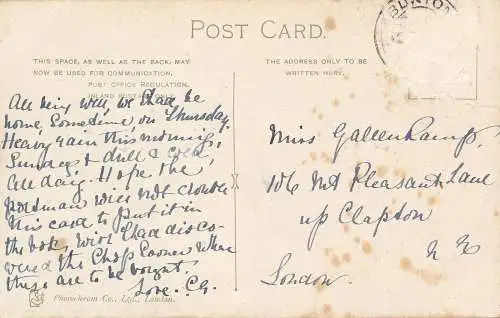 POST CARD.
THIS SPACE, AS WELL AS THE BACK, MAY
NOW BE USED FOR COMMUNICATION.
POST OFFICE REGULATION.
INLAND POSTAGE ONLY.
All being well, we shall be
home sometime on Thursday.
Heavy rain this morning,
Sunday, & dull & cold,
all day. Hope the
Postman will not
this card to put it in
the box, will
the Chop Corner where
these are to be bought.
Love. C.G.
Photochrom Co., Ltd., London.
THE ADDRESS ONLY TO BE
WRITTEN HERE.
Miss Gallenkamp.
106 Mt Pleasant Lane
up Clapton
N E
London.
BUXTON